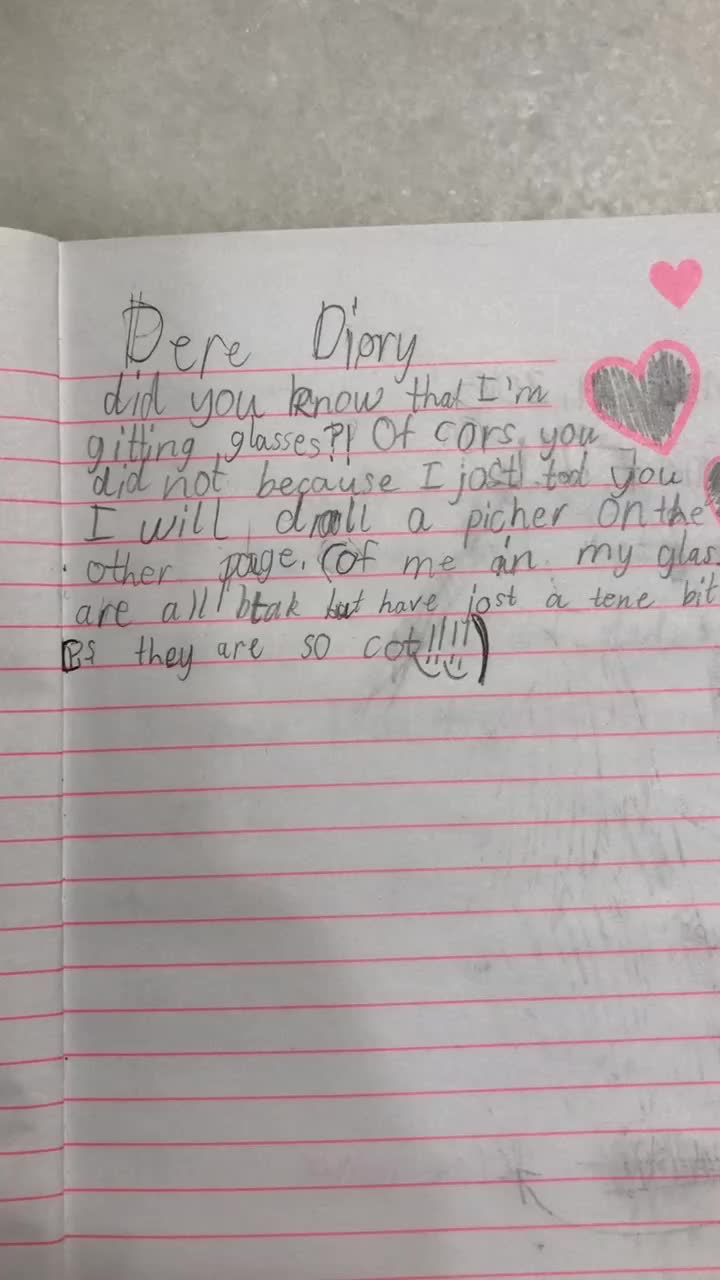 Dere Diory
did you know that I'm
gitting glasses?! Of cors you
did not because I jost told you
I will drall a picher on the
other page. (of me an my glas
are all blak but have jost a tene bit
Bs they are so cot!!!!!)